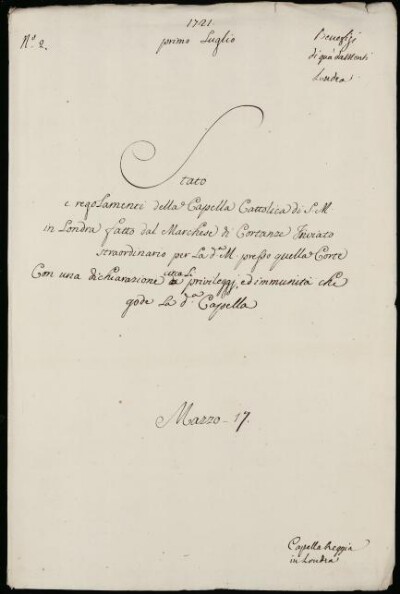 1721.
N.o 2.
primo Luglio
Benefizi
di quà da Monti
Londra
Stato
e regolamenti della Cappella Cattolica di S. M
in Londra fatto dal Marchese di Cortanze Inviato
straordinario per La d.a M. presso quella Corte
Con una dichiarazione circa Li privileggj, ed immunità che
gode La d.a Cappella
Mazzo - 17.
Capella Reggia
in Londra